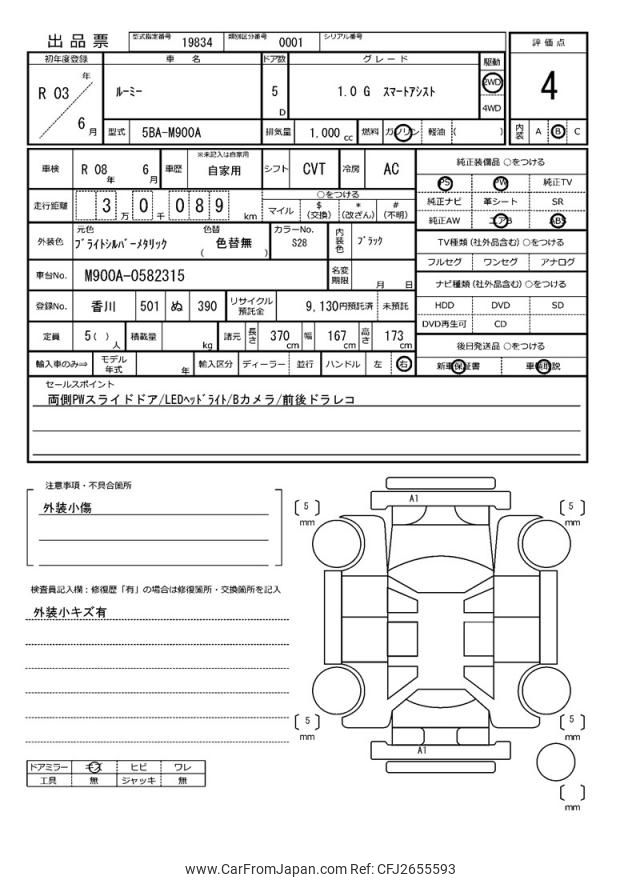 出品票 型式指定番号 19834 類別区分番号 0001 シリアル番号
評価点
4
内装 A B C
初年度登録 車名 ドア数 グレード 駆動
R 03 年 6 月 ルーミー 5 D 1.0 G スマートアシスト 2WD 4WD
型式 5BA-M900A 排気量 1.000 cc 燃料 ガソリン 軽油 ( )
車検 R 08 年 6 月 車歴 ※未記入は自家用 自家用 シフト CVT 冷房 AC
走行距離 3 万 0 千 0 8 9 km ○をつける
マイル $ (交換) * (改ざん) # (不明)
外装色 元色 ブライトシルバーメタリック 色替 ( 色替無 ) カラーNo. S28 内装色 ブラック
車台No. M900A-0582315 名変期限 月 日
登録No. 香川 501 ぬ 390 リサイクル預託金 9,130円預託済 未預託
定員 5 ( ) 人 積載量 kg 諸元 長さ 370 cm 幅 167 cm 高さ 173 cm
輸入車のみ⇒ モデル年式 年 輸入区分 ディーラー 並行 ハンドル 左 右
純正装備品 ○をつける
PS PW 純正TV
純正ナビ 革シート SR
純正AW エアB ABS
TV種類 (社外品含む) ○をつける
フルセグ ワンセグ アナログ
ナビ種類 (社外品含む) ○をつける
HDD DVD SD
DVD再生可 CD
後日発送品 ○をつける
新車保証書 車輌取説
セールスポイント
両側PWスライドドア/LEDヘッドライト/Bカメラ/前後ドラレコ
注意事項・不具合箇所
外装小傷
検査員記入欄：修復歴「有」の場合は修復箇所・交換箇所を記入
外装小キズ有
ドアミラー キズ ヒビ ワレ
工具 無 ジャッキ 無
A1
5 mm
5 mm
5 mm
5 mm
A1
mm
www.CarFromJapan.com Ref: CFJ2655593